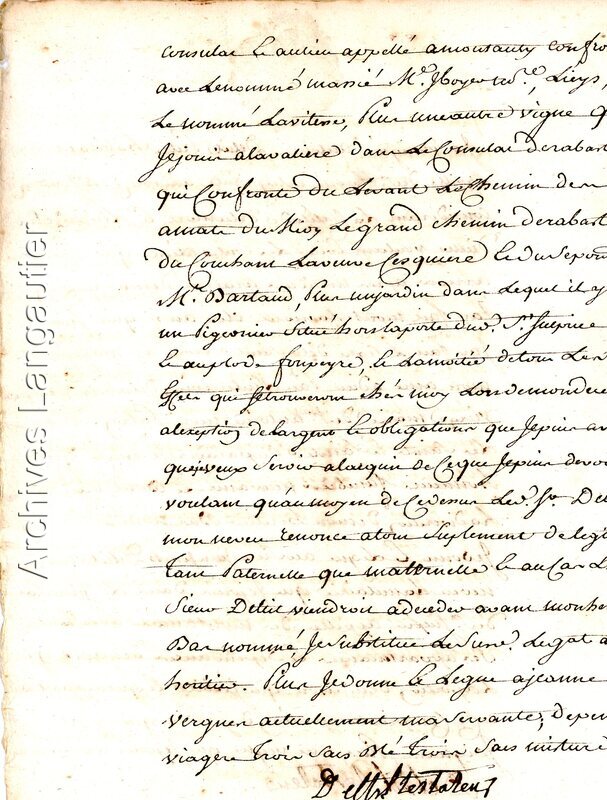 Consulac le aulieu appellé amontauty confro
avec Lenommé massié Mr. Jboyer Lieys,
Le nommé Lavitesse, Plus une autre vigne q
Jejouis alavaliere dans Le Consulac derabast
qui Confronte du Levant Le Chemin de
amate du Midy Le grand chemin derabast
du Couchant Laveuve Cesquiere le du Sep
Mr. Bartaud, Plus unjardin dans Lequel il y
un Pigeonier Situé hors laporte dud. St. Sulpice
le auplo de fonpeyre, le Lamoitié de tous Les
qui Setrouveront chés moy Lors demondece
alexeption delargent le obligations que Jepuis av
quejeveux Servir alaquin de Ceque Jepuis devo
voulant qu'aumoyen de Cedessus Led. Sr. De
mon neveu renonce atout Suplement de legit
Tant Paternelle que maternelle le au Cas Le
Sieur Delut viendroit adeceder avant monhe
Bas nommé, Je Substitue Le Susd. Legat a
heritier. Plus Jedonne le Legue ajeanne
vergnes actuellement maservante, depen
viagere Trois Sacs blé Trois Sacs mixture
testateur
Archives Langautier